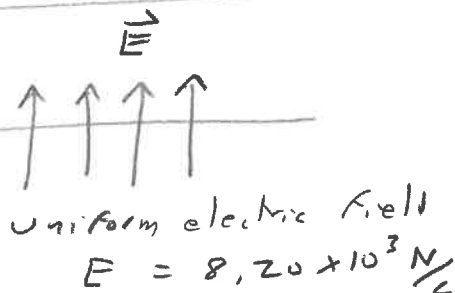 E
uniform electric field
E = 8,20 × 10³ N/C